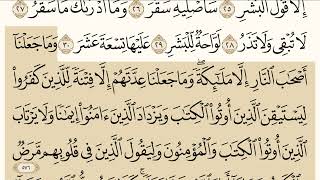 إِلَّا قَوْلُ ٱلْبَشَرِ ٢٥ سَأُصْلِيهِ سَقَرَ ٢٦ وَمَآ أَدْرَىٰكَ مَا سَقَرُ ٢٧
لَا تُبْقِى وَلَا تَذَرُ ٢٨ لَوَّاحَةٌ لِّلْبَشَرِ ٢٩ عَلَيْهَا تِسْعَةَ عَشَرَ ٣٠ وَمَا جَعَلْنَآ
أَصْحَٰبَ ٱلنَّارِ إِلَّا مَلَٰٓئِكَةً ۙ وَمَا جَعَلْنَا عِدَّتَهُمْ إِلَّا فِتْنَةً لِّلَّذِينَ كَفَرُوا۟
لِيَسْتَيْقِنَ ٱلَّذِينَ أُوتُوا۟ ٱلْكِتَٰبَ وَيَزْدَادَ ٱلَّذِينَ ءَامَنُوٓا۟ إِيمَٰنًا ۙ وَلَا يَرْتَابَ
ٱلَّذِينَ أُوتُوا۟ ٱلْكِتَٰبَ وَٱلْمُؤْمِنُونَ ۙ وَلِيَقُولَ ٱلَّذِينَ فِى قُلُوبِهِم مَّرَضٌ
٥٧٦